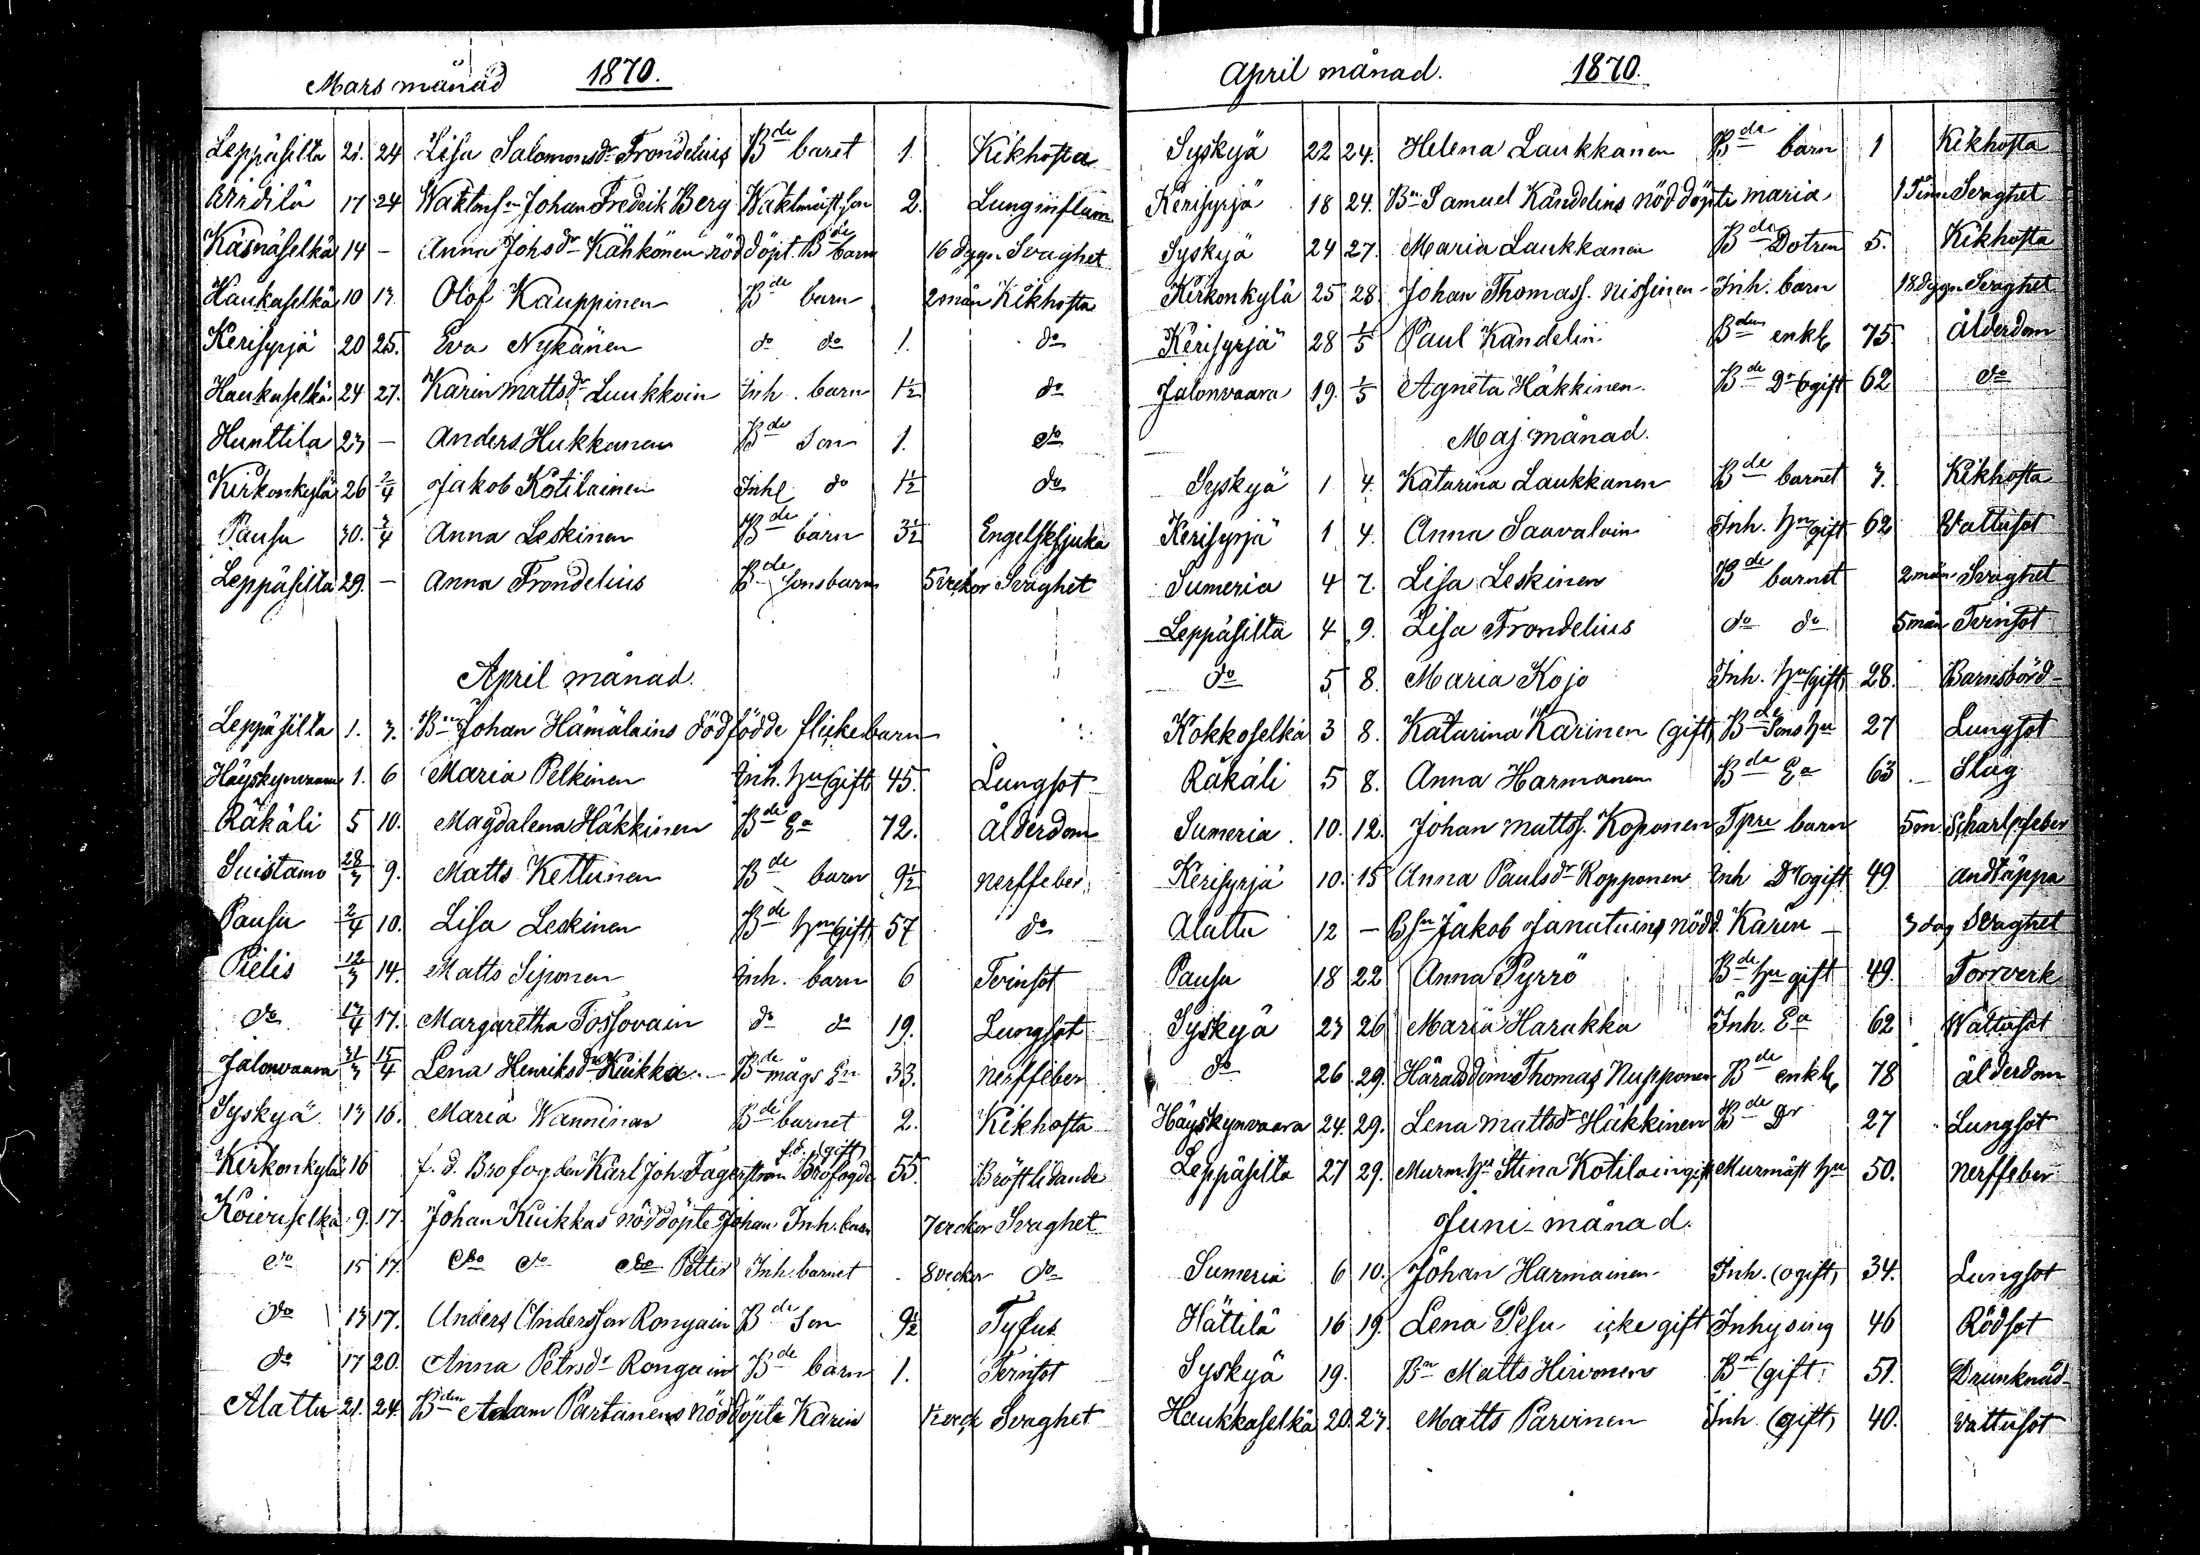 Mars månad 1870.
Leppäsilta 21. 24 Lisa Salomonsdr Frondelius Bde baret 1. Kikhosta
Arridilä 17 24 Waktmsn Johan Fredrik Berg Waktmäst. son 2. Lunginflam
Käsnäselkä 14 - Anna Johsdr Kähkönen nöd döpt. Bde barn 16 dygn Svaghet
Haukaselkä 10 13. Olof Kauppinen Bde barn 2 mån Kikhosta
Kerisyrjä 20 25. Eva Nykänen do do 1. do
Haukaselkä 24 27. Karin Mattsdr Luukkoin Inh. barn 1½ do
Hunttila 23 - Anders Hukkanen Bde Son 1. do
Kirkonkylä 26 2/4 Jakob Kotilainen Inh do 1½ do
Pausu 30. 3/4 Anna Leskinen Bde barn 3½ Engelsksjuka
Leppäsilta 29. - Anna Frondelius Bde Sonsbarn 5 veckor Svaghet
April månad.
Leppäsilta 1. 3. Bn Johan Hämäläins dödfödde flickebarn
Häyskynvaara 1. 6 Maria Pelkinen Inh. hu (gift) 45. Lungsot
Räkäli 5 10. Magdalena Häkkinen Bde Ea 72. Ålderdom
Suistamo 28/3 9. Matts Kettunen Bde barn 9½ Nerffeber
Pausu 2/4 10. Lisa Leskinen Bde hu (gift) 57 do
Pielis 12/3 14. Matts Siponen Inh. barn 6 Tvinsot
do 14/4 17. Margaretha Tossovain do do 19. Lungsot
Jalonvaara 31/3 15/4 Lena Henriksdr Kuikka Bde mågs En 33. Nerffeber
Syskyä 13 16. Maria Wanninen Bde barnet 2. Kikhosta
Kirkonkylä 16 f. d. Brofogden Karl Joh. Fagerström f.d. (gift) Brofogde 55. Bröstlidande
Koivuselkä 9. 17. Johan Kuikkas nöddöpte Johan Inh. barn 7 veckor Svaghet
do 15 17. do do do Petter Inh. barnet 8 veckor do
do 13 17. Anders Andersson Rongain Bde Son 9½ Tyfus
do 17 20. Anna Petersdr Rongain Bde barn 1. Tvinsot
Alattu 21. 24. Bden Adam Partanens nöddöpte Karin Svaghet
April månad. 1870.
Syskyä 22 24. Helena Laukkanen Bde barn 1 Kikhosta
Kerisyrjä 18 24. Bn Samuel Kandelins nöd döpte Maria 1 Tim Svaghet
Syskyä 24 27. Maria Laukkanen Bde Dotren 5. Kikhosta
Kirkonkylä 25 28 Johan Thomass. Nissinen Inh. barn 18 dygn Svaghet
Kerisyrjä 28 1/5 Paul Kandelin Bden enkl 75. ålderdom
Jalonvaara 19. 1/5 Agneta Häkkinen. Bde Dr Ogift 62 do
Maj månad.
Syskyä 1 4. Katarina Laukkanen Bde barnet 3. Kikhosta
Kerisyrjä 1 4. Anna Saavalain Inh. hu gift 62 Vattusot
Sumeria 4 7. Lisa Leskinen Bde barnet 2 mån Svaghet
Leppäsilta 4 9. Lisa Frondelius do do 5 mån Tvinsot
do 5 8. Maria Kojo Inh. hu (gift) 28. Barnsbörd
Kokkoselkä 3 8. Katarina Karinen (gift) Bde Sons hu 27 Lungsot
Räkäli 5 8. Anna Harmanen Bde Ea 63 Slag
Sumeria 10. 12. Johan Mattss. Koponen Tpre barn 5 m. Skarlpfeber
Kerisyrjä 10. 15 Anna Paulsdr Kopponen Inh Dr ogift 49 andtäppa
Alattu 12 - Bsn Jakob Janatuins nödd. Karin 3 dag Svaghet
Pausu 18 22 Anna Pyrrö Bde hu gift 49. Torrverk
Syskyä 23 26 Maria Harakka Inh. Ea 62 Wattusot
do 26 29. Häradsdom Thomas Nupponen Bde enkl 78 ålderdom
Häyskynvaara 24. 29. Lena Mattsdr Häkkinen Bde Dr 27 Lungsot
Leppäsilta 27 29. Murm. hu Stina Kotilain gift Murmäst hu 50. Nerffeber
Juni månad.
Sumeria 6 10. Johan Harmainen Inh. (ogift) 34. Lungsot
Hättilä 16 19. Lena Pesu icke gift Inhysing 46 Rödsot
Syskyä 19. Bn Matts Hirvonen Bd (gift) 51. Drunknad
Haukkaselkä 20. 23. Matts Parvinen Inh. (gift) 40. Vattusot